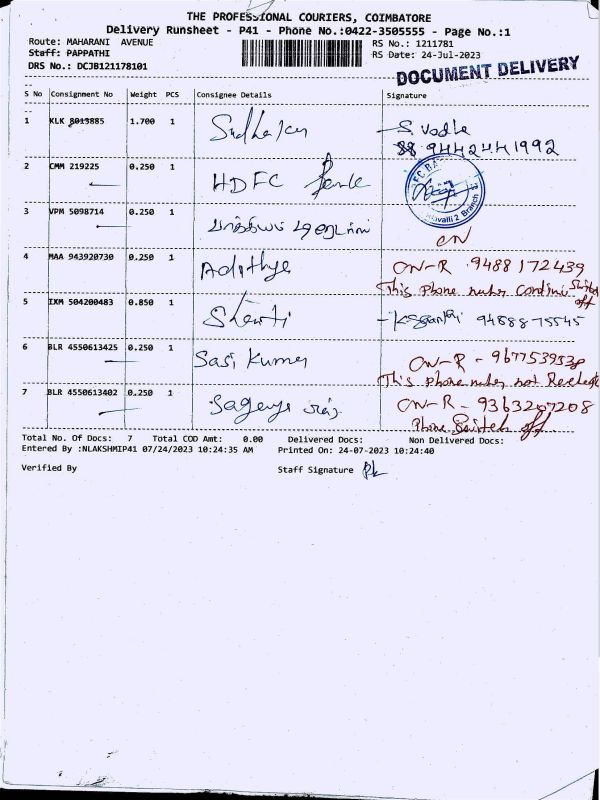 THE PROFESSIONAL COURIERS, COIMBATORE
Delivery Runsheet - P41 - Phone No.:0422-3505555 - Page No.:1
Route: MAHARANI AVENUE
RS No.: 1211781
Staff: PAPPATHI
RS Date: 24-Jul-2023
DRS No.: DCJB121178101
DOCUMENT DELIVERY
S No Consignment No Weight PCS Consignee Details Signature
1 KLK 8013885 1.700 1 Sudhakar S. Vadla
9442441992
2 CMM 219225 0.250 1 HDFC Bank
3 VPM 5098714 0.250 1
CN
4 MAA 943920730 0.250 1 Adithya CN-R 9488172439
This Phone number Switch
off
5 IXM 504200483 0.850 1 94888 75545
6 BLR 4550613425 0.250 1 Sasi Kumar CN-R -
This phone number not
7 BLR 4550613402 0.250 1 CN-R - 9363207208
Phone Switch off
Total No. Of Docs: 7 Total COD Amt: 0.00 Delivered Docs: Non Delivered Docs:
Entered By :NLAKSHMIP41 07/24/2023 10:24:35 AM Printed On: 24-07-2023 10:24:40
Verified By Staff Signature